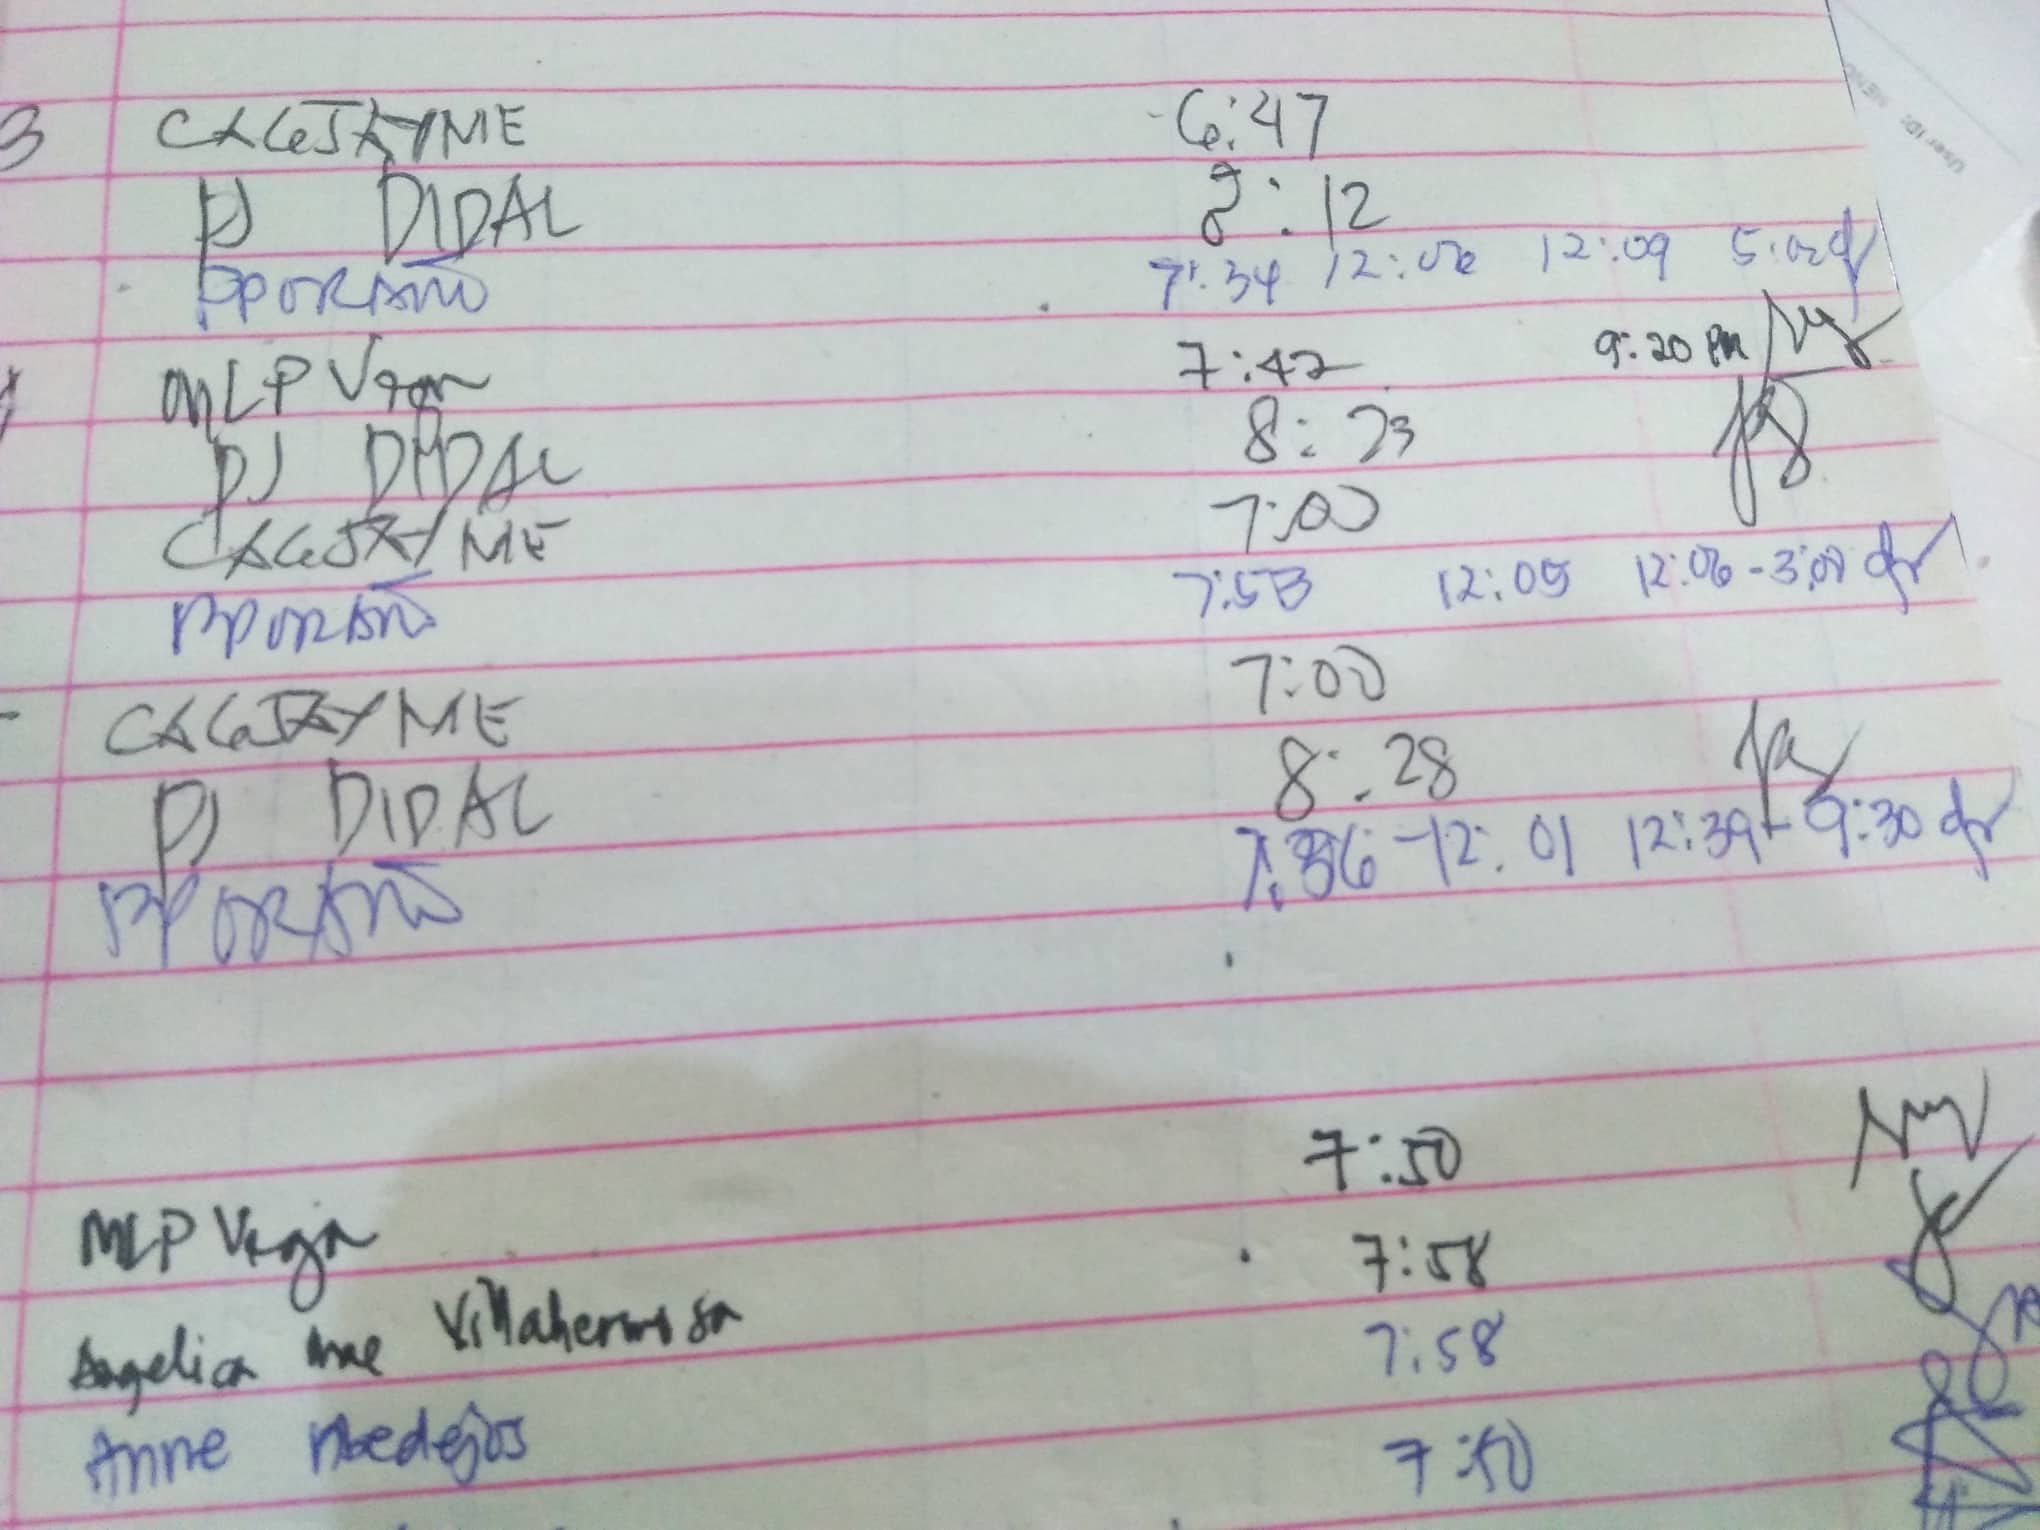 3 CAGJAYME 6:47
PJ DIDAL 8:12
PPORAÑO 7:34 12:06 12:09 5:02
MLP Vega 7:42 9:20 PM
PJ DIDAL 8:23
CAGJAYME 7:00
PPORAÑO 7:53 12:05 12:06-3:07
CAGJAYME 7:00
PJ DIDAL 8:28
PPORAÑO 7:36-12:01 12:39-9:30
MLP Vega 7:50
Angelica Mae Villahermosa 7:58
Anne 7:58
7:50
User ID: